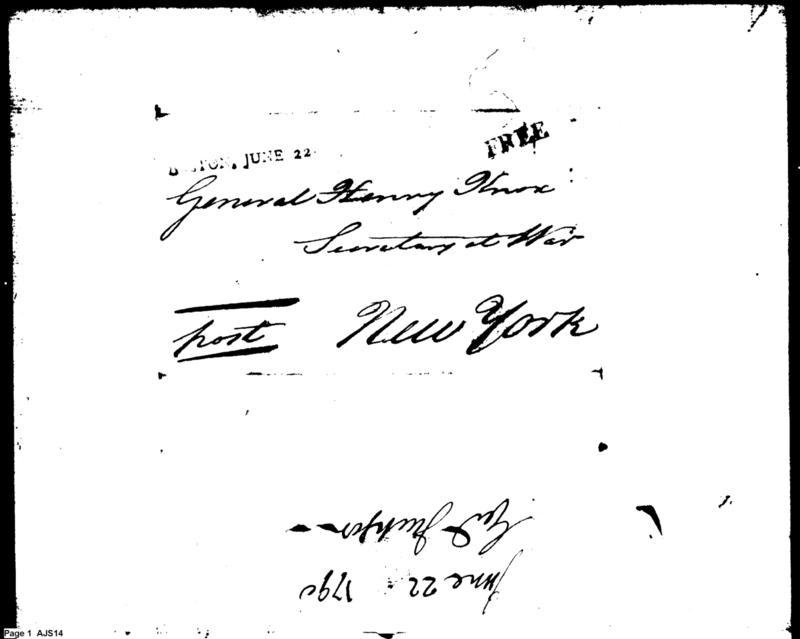 BOSTON, JUNE 22
FREE
General Henry Knox
Secretary at War
post
New York
Genl Jackson
June 22 1790
Page 1 AJS14